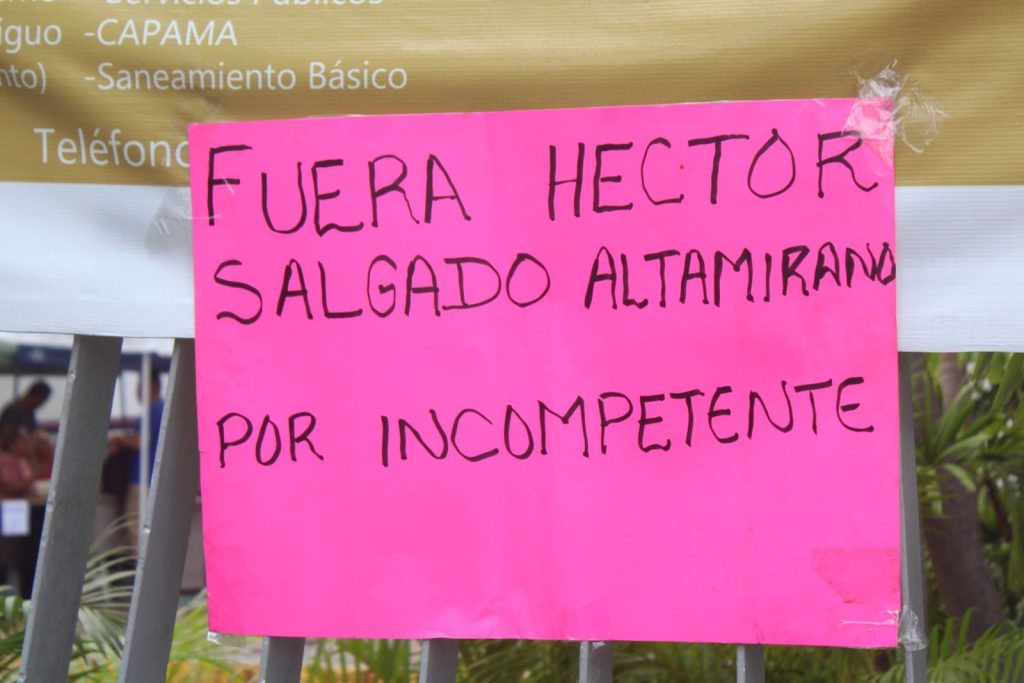 Servicios Públicos
iguo -CAPAMA
nto) -Saneamiento Básico
Teléfono
FUERA HECTOR
SALGADO ALTAMIRANO
POR INCOMPETENTE